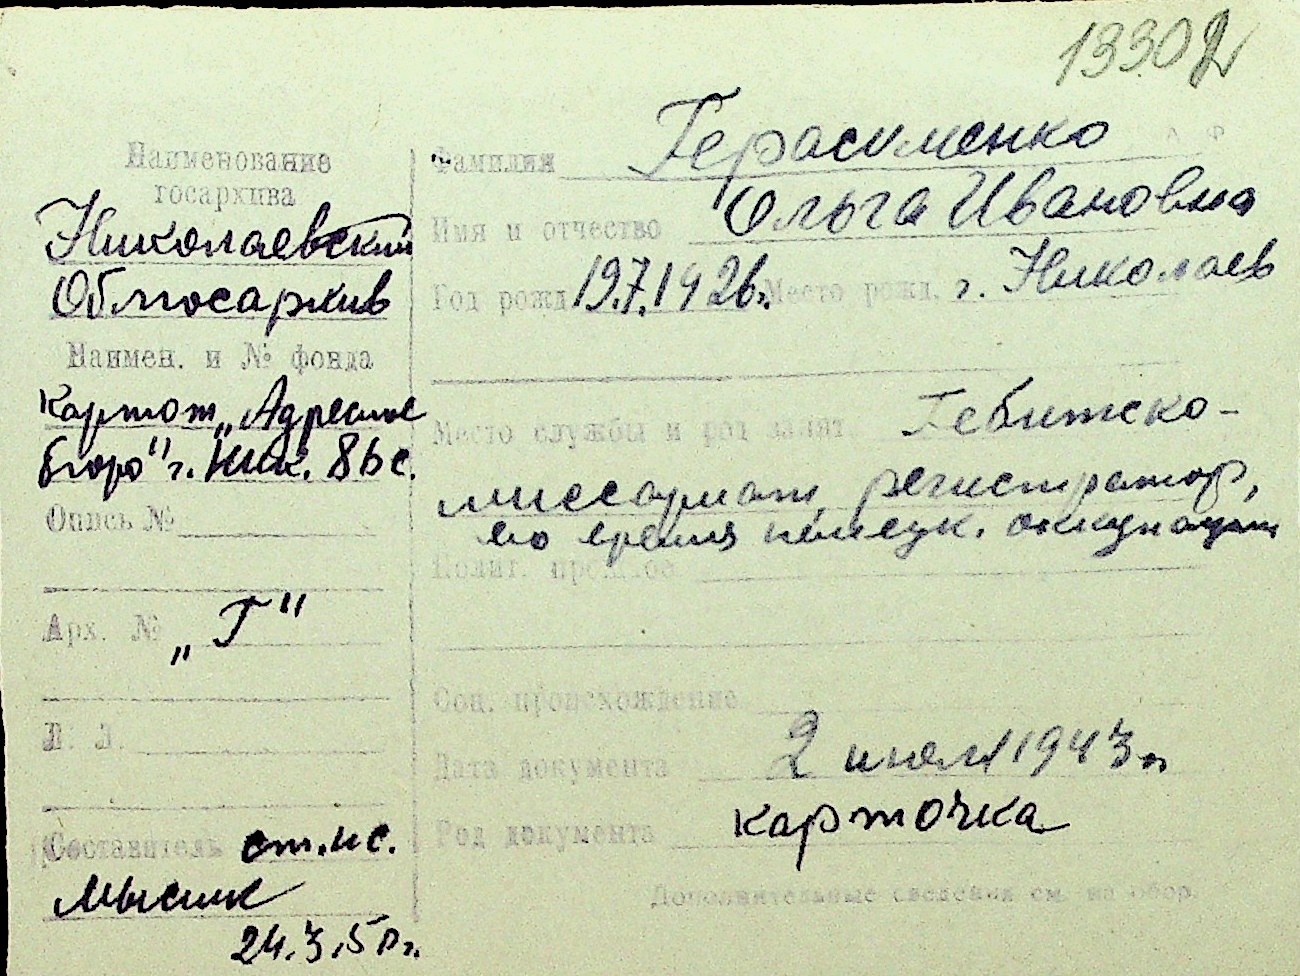 13302
Наименование
госархива
Николаевский
Облгосархив
Наимен. и № фонда
Картот „Адресное
бюро" г. Ник. 8вс.
Опись №
Арх. № „Г"
Л. Л.
Составитель ст. ис.
Мысик
24.3.50 г.
Фамилия Герасименко
Имя и отчество Ольга Ивановна
Год рожд. 19.7.1926. Место рожд. г. Николаев
Место службы и род занят. Гебитско-
миссариат, регистратор,
во время немецк. оккупации
Полит. прошлое
Соц. происхождение
Дата документа 2 июля 1943 г.
Род документа карточка
Дополнительные сведения см. на обор.